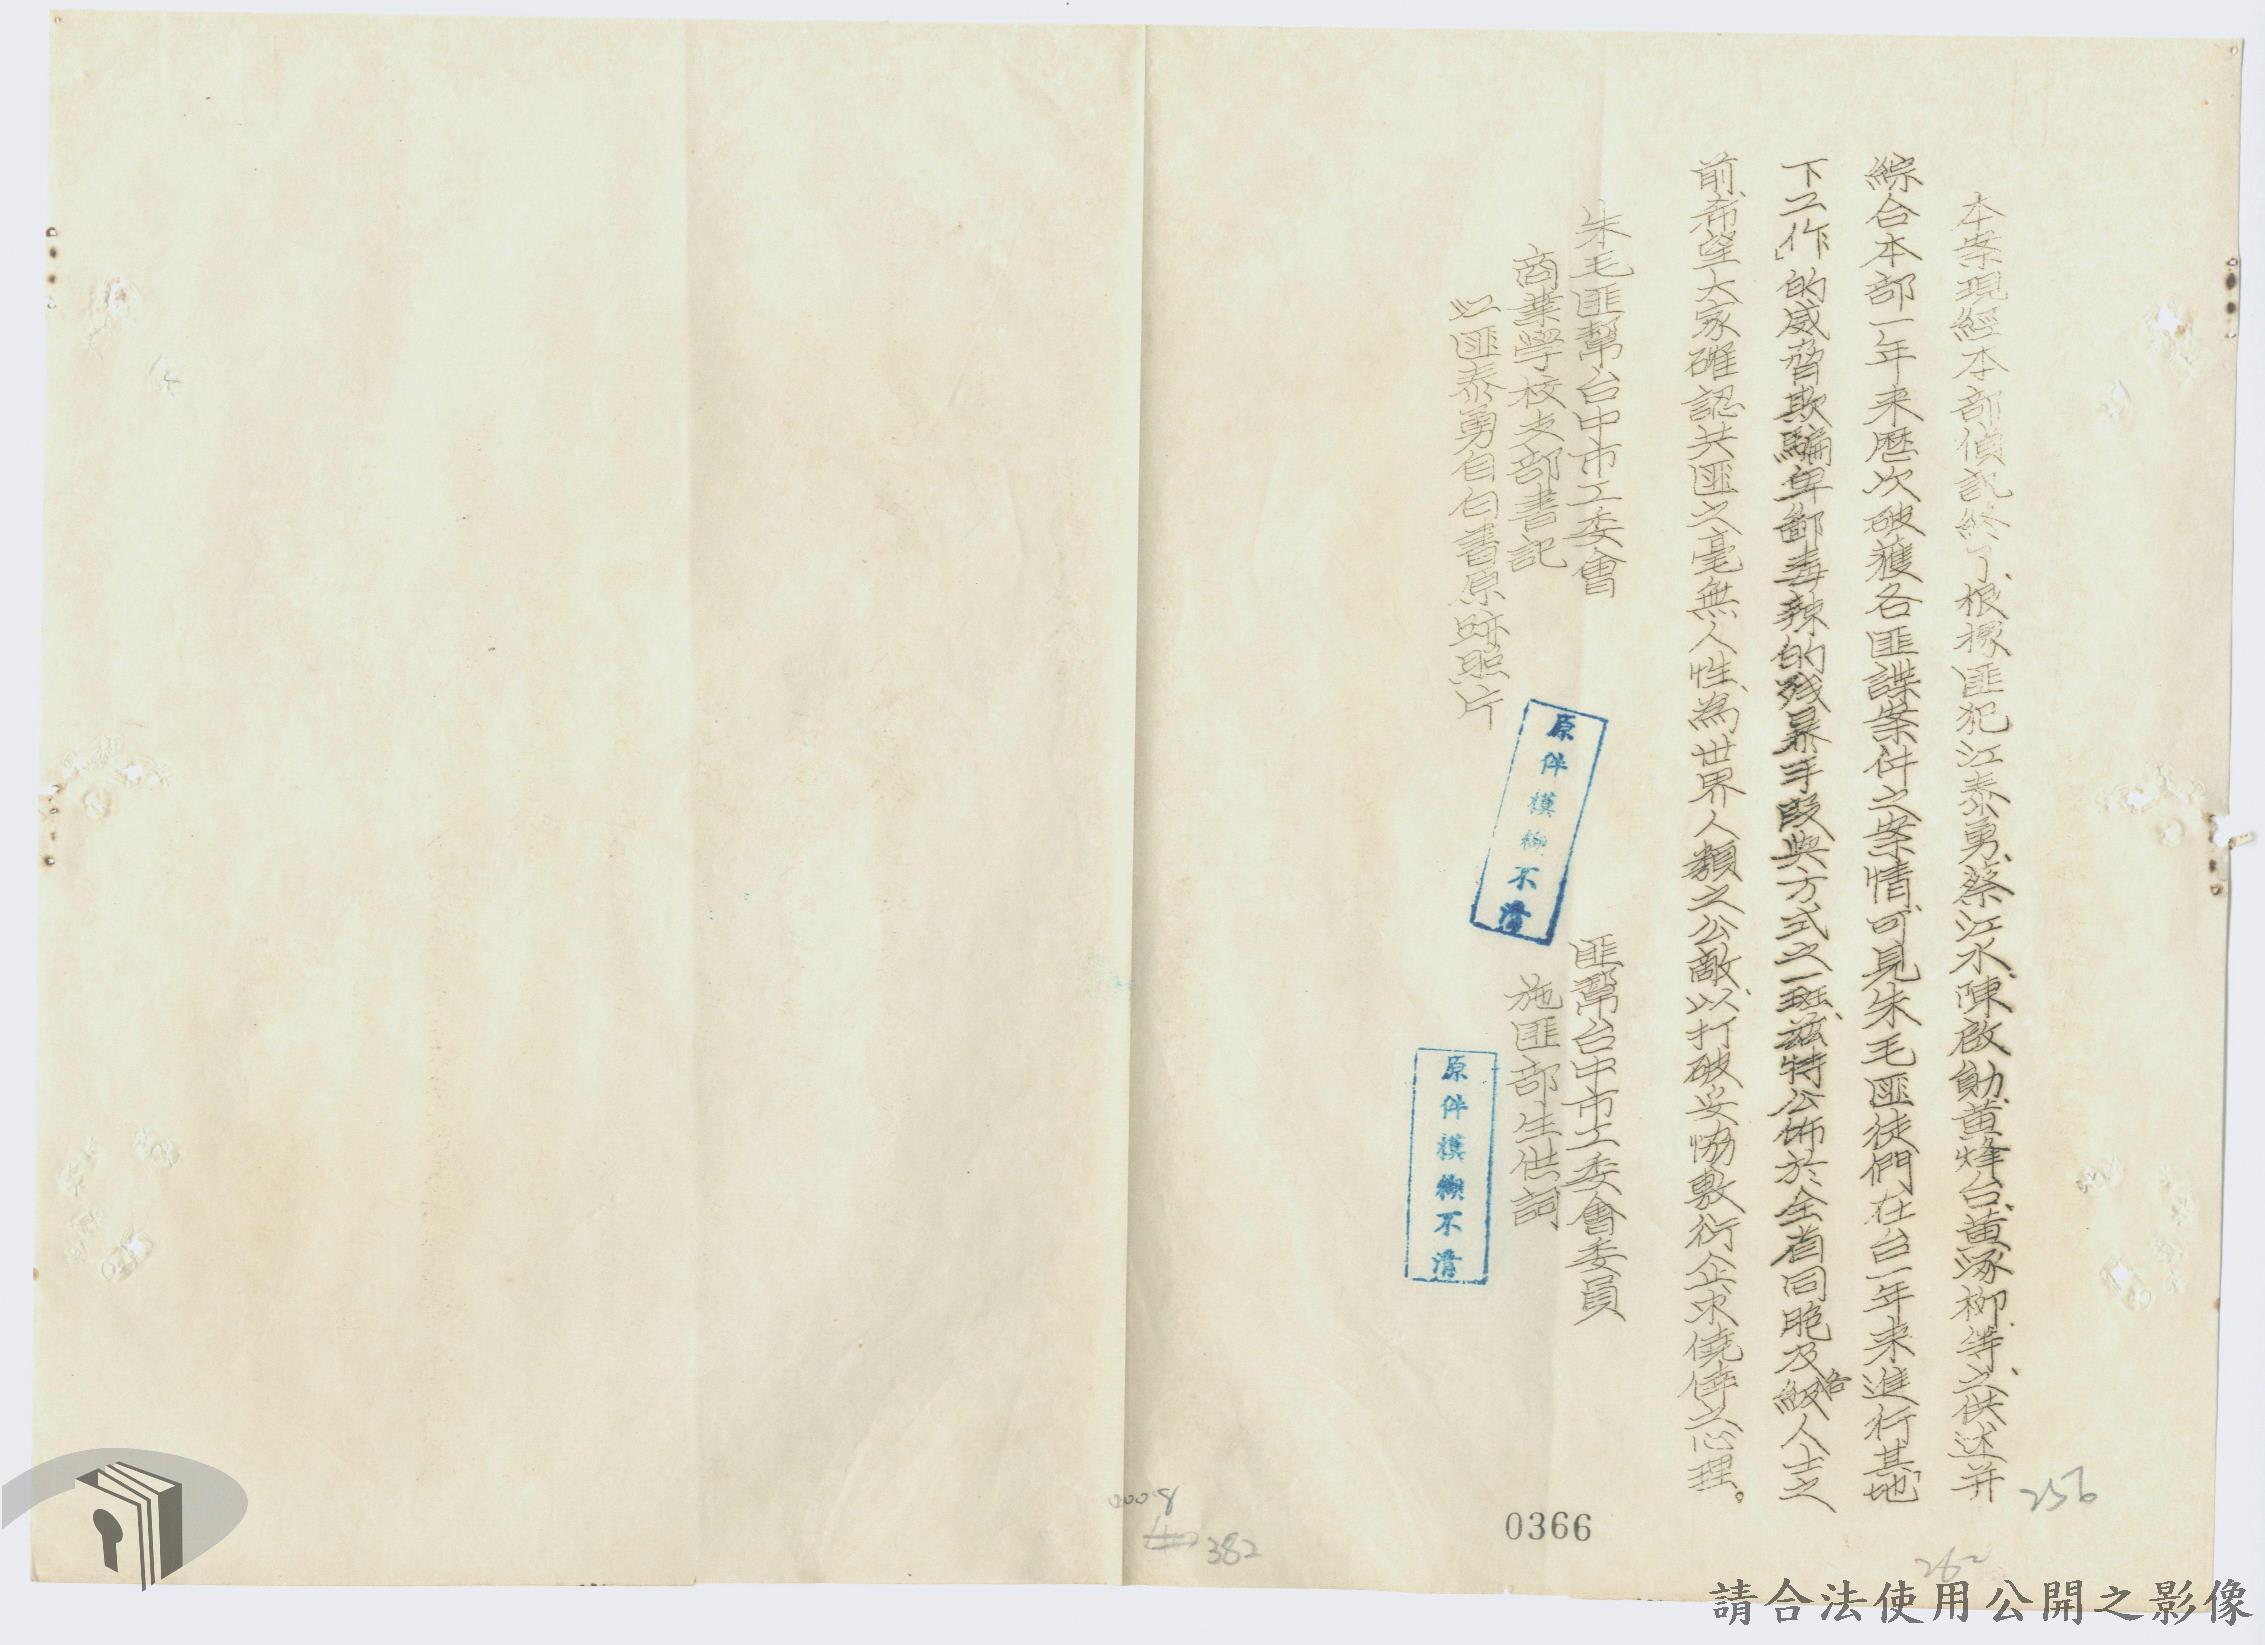 本案現經本部偵訊終了、根據匪犯江泰勇、蔡江水、陳啟勛、黃烽台、黃逐柳等之供述并
綜合本部一年来歷次破獲各匪諜案件之案情、可見朱毛匪徒們在台一年来進行其「地
下工作」的威脅欺騙卑鄙毒辣的残暴手段與方式之一斑、茲特公佈於全省同胞及各級人士之
前、希望大家確認共匪之毫無人性、為世界人類之公敵、以打破妥協敷衍企求僥倖之心理。
朱毛匪幫台中市工委會
商業学校支部書記
江匪泰勇自白書原跡照片
匪幫台中市工委會委員
施匪部生供詞
原件模糊不清
原件模糊不清
256
262
0366
0008
382
請合法使用公開之影像